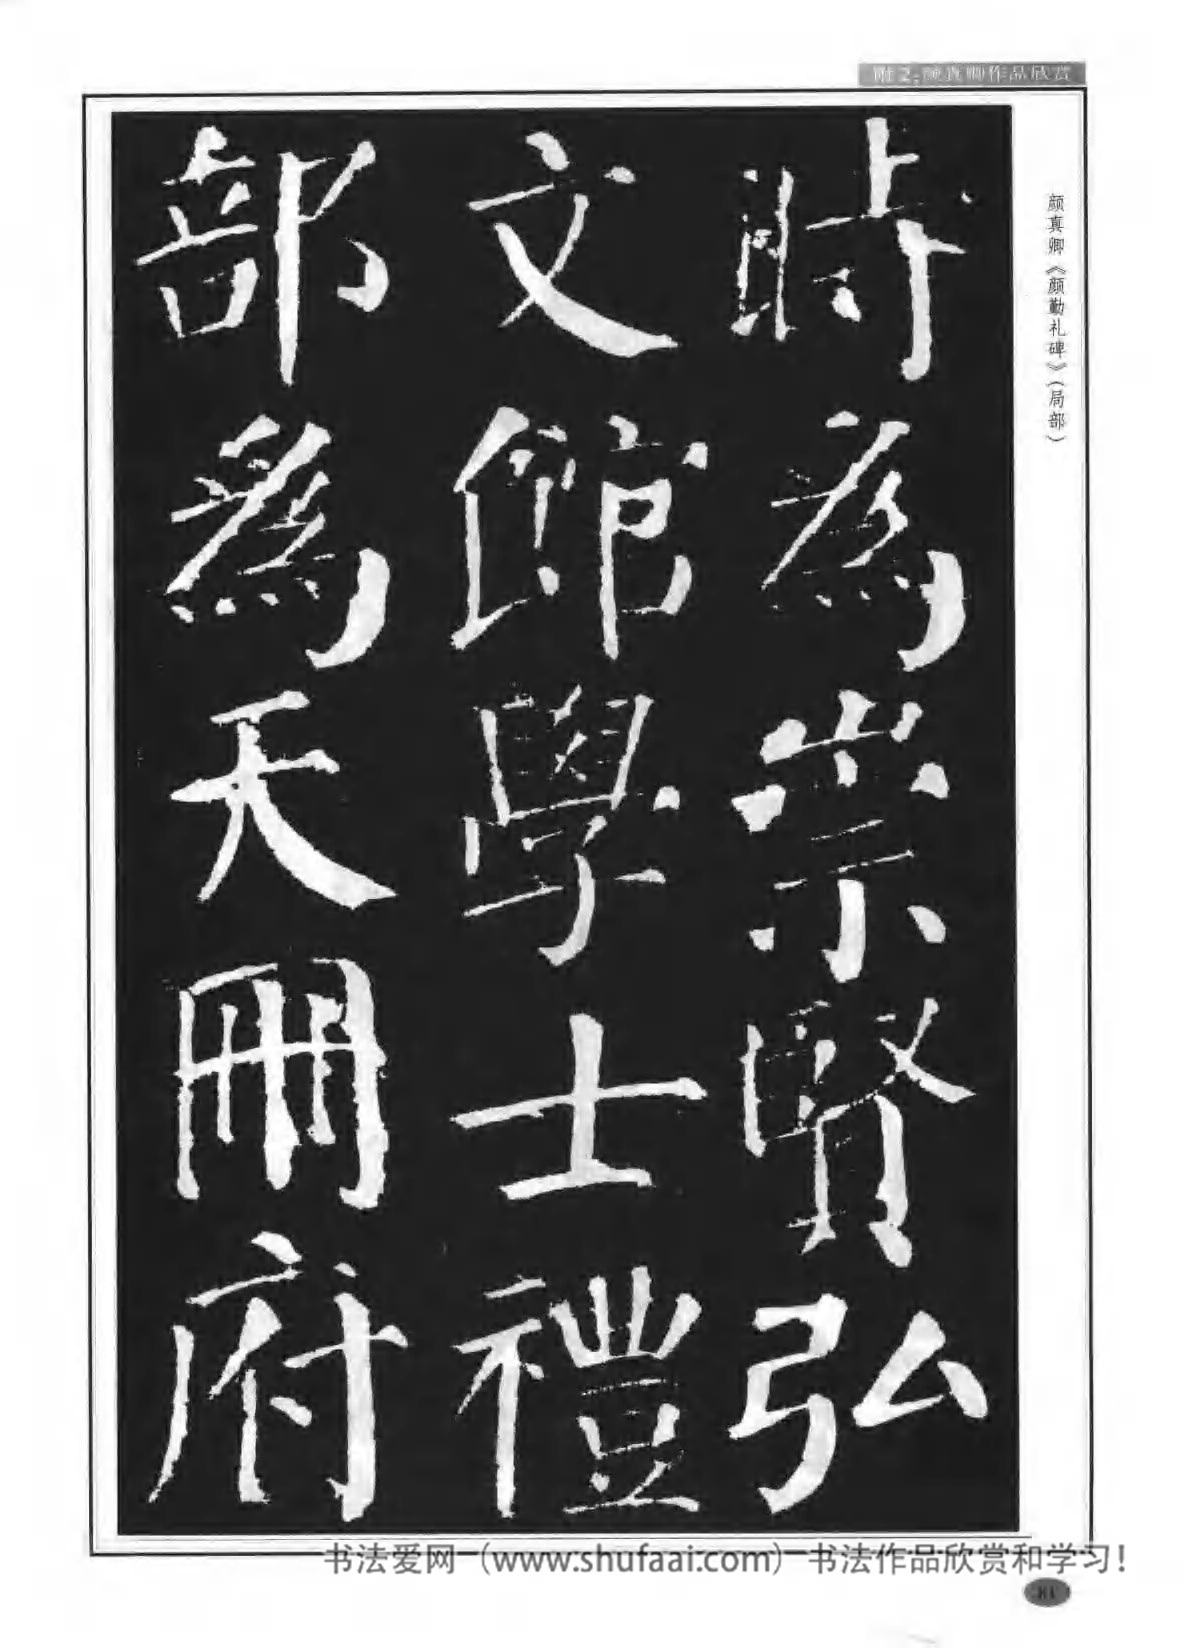 附2:颜真卿作品欣赏
颜真卿《颜勤礼碑》(局部)
時為崇賢弘
文館學士禮
部為天冊府
书法爱网 (www.shufaai.com) 书法作品欣赏和学习!
81